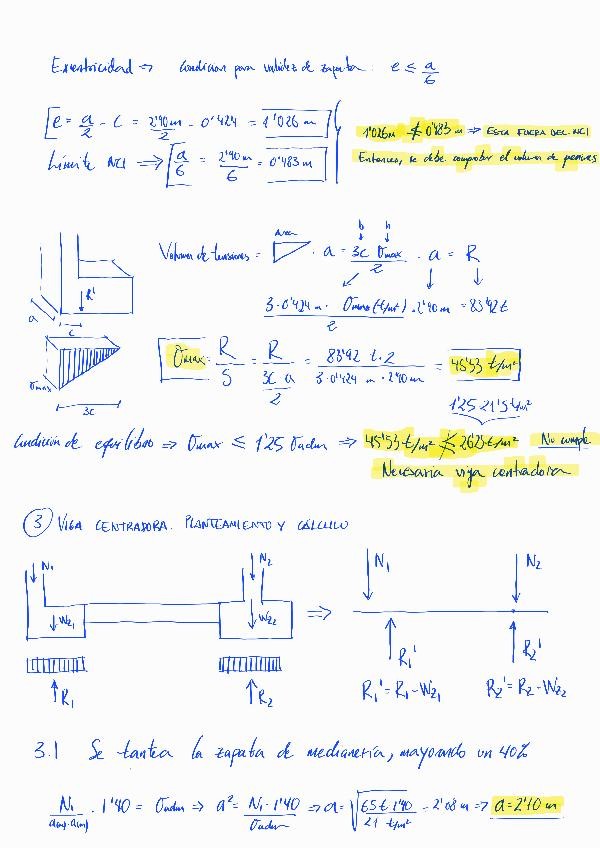 Excentricidad ⇒ Condicion para validez de zapata: e ≤ a/6
e = a/2 - c = 2'90 m/2 - 0'424 = 1'026 m
1'026 m ≰ 0'483 m ⇒ ESTA FUERA DEL NCI
Límite NCI ⇒ a/6 = 2'90 m/6 = 0'483 m
Entonces, se debe comprobar el volumen de presiones
Volumen de tensiones = Area · a = 3c σmax/2 · a = R
b h
R'
a
c
3·0'424 m · σmax (t/m²)/2 · 2'90 m = 83'92 t
σmax
3c
σmax = R/S = R/(3c a/2) = 83'92 t · 2/(3·0'424 m · 2'90 m) = 45'53 t/m²
1'25·21'5 t/m²
Condición de equilibrio ⇒ σmax ≤ 1'25 σadm ⇒ 45'53 t/m² ≰ 26'25 t/m² No cumple
Necesaria viga centradora
3 VIGA CENTRADORA. PLANTEAMIENTO Y CÁLCULO
N1 N2 N1 N2
Wz1 Wz2 ⇒
R1 R2 R1' R2'
R1' = R1 - Wz1 R2' = R2 - Wz2
3.1 Se tantea la zapata de medianería, mayorando un 40%
N1/(a(m)·a(m)) · 1'40 = σadm ⇒ a² = N1·1'40/σadm ⇒ a = √(65 t·1'40/21 t/m²) = 2'08 m ⇒ a = 2'10 m